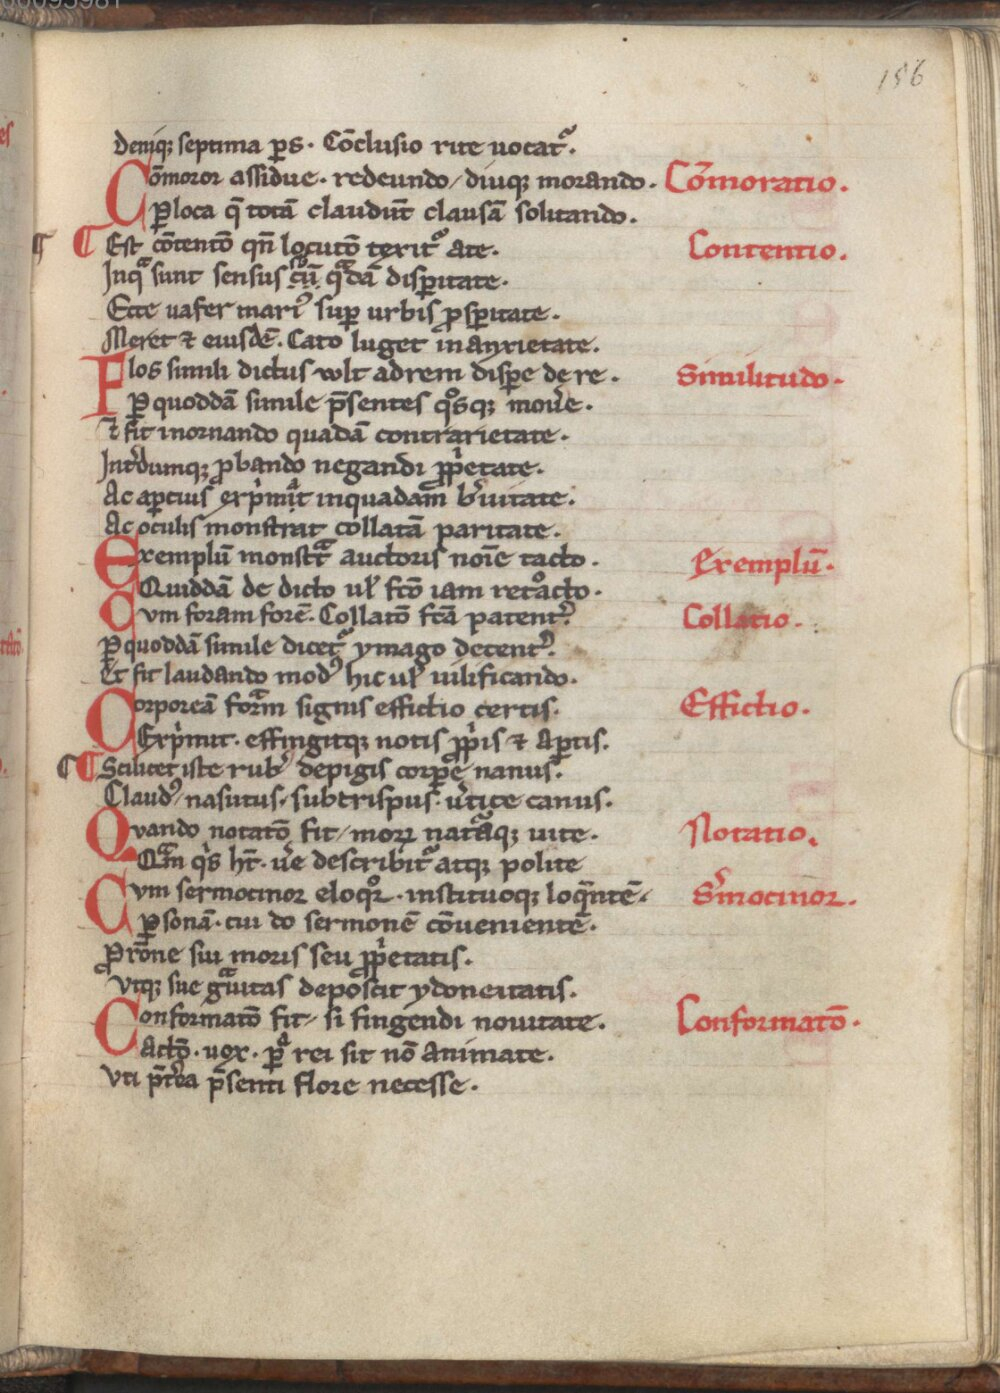 156
Deniq; septima ps. Cōclusio rite uocat᷑.
Cōmoror assidue. redeundo / diuq; morando. Cōmoratio.
P loca q̄ totā claudūt clausā solitando.
Est cōtentō qn̄ locutō terit᷑ ate. Contentio.
Inqͣ sunt sensus cū qͣdā disparitate.
Ecce uafer mari᷒ sup urbis psperitate.
Meret ⁊ eiusdē. Cato luget in anxietate.
Flos simili dictus wlt ad rem dispe de re. Similitudo.
P quoddā simile p̄sentes qͦsq; mou̓e.
⁊ fit in ornando quadā contrarietate.
Int̓dumq; probando negandi pp̓etate.
Ac apcius exp̓mit in quadam b̓uitate.
Ac oculis monstrat collatā paritate.
Exemplū monstͣt auctoris noīe tacto. Exemplū.
Quiddā de dicto ul̓ fc̄o iam retͦacto.
Cum foram forē. Collatō fc̄a patent᷑. Collatio.
P quoddā simile dicet᷑ ymago decent᷑.
Et fit laudando mod᷒ hic ul̓ uilificando.
Corporeā formͣm signis effictio certis. Effictio.
Exp̓mit. effingitq; notis pp̓is ⁊ apertis.
Scilicet iste rub᷒ depigis corpore nanus.
Claud᷒ / nasutus / subcrispus. u̓tice canus.
Quando notatō fit / moꝝ natͣāq; uite. Notatio.
Qͣm qͥs ht̄. u̓e describit᷑ atq; polite
Cum sermocinor eloqͦr. instituoq; loqͣntē. S̓mocinor.
Personā. cui do sermonē cōuenientē.
Prōne siu moris seu pp̓etatis.
Utq; sue gͣuitas deposcit ydoneitatis.
Conformatō fit / si fingendi nouitate. Conformatō.
Actō. uox. pͣ rei sit nō animate.
Uti pͣt̓ea p̄senti flore necesse.